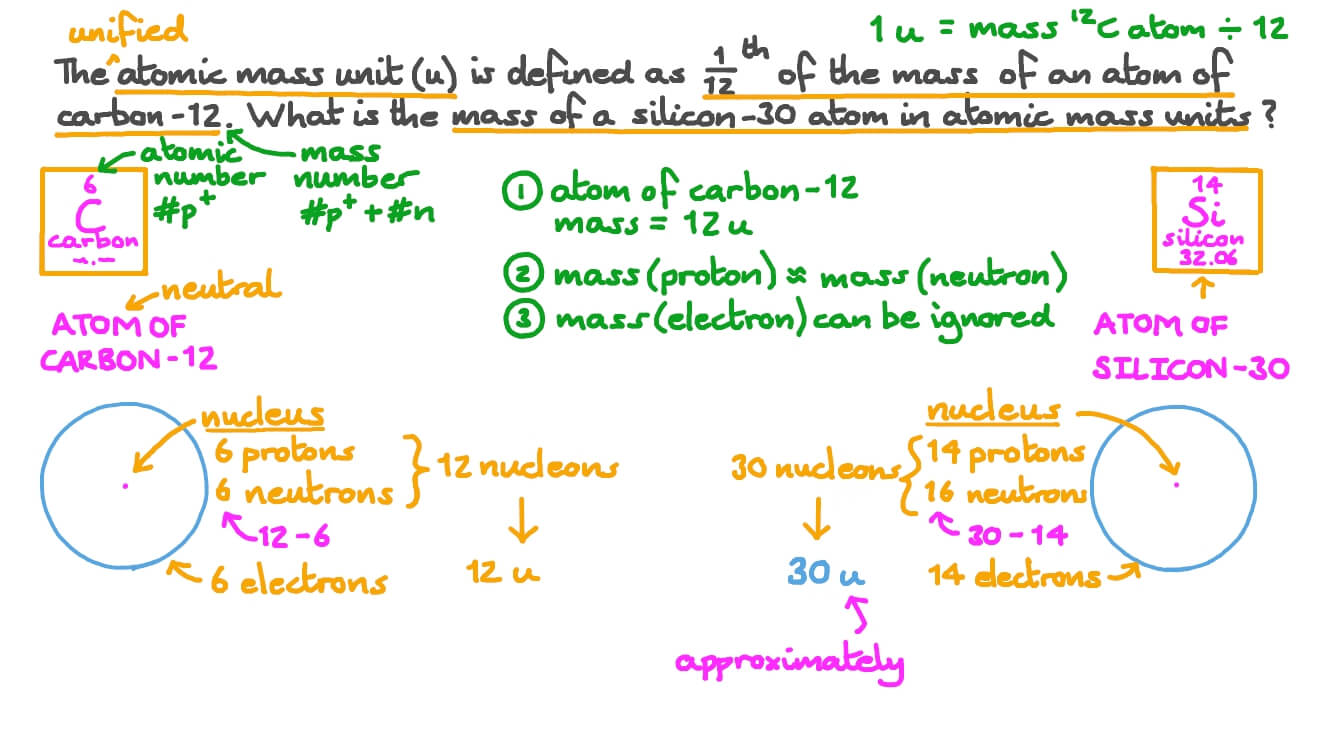 unified
1 u = mass ¹²C atom ÷ 12
The ^ atomic mass unit (u) is defined as 1/12 th of the mass of an atom of
carbon-12. What is the mass of a silicon-30 atom in atomic mass units?
atomic number #p⁺
mass number #p⁺ + #n
6
C
carbon
-.-
neutral
ATOM OF
CARBON-12
① atom of carbon-12
mass = 12 u
② mass (proton) ≈ mass (neutron)
③ mass (electron) can be ignored
14
Si
silicon
32.06
ATOM OF
SILICON-30
nucleus
6 protons
6 neutrons
12 - 6
6 electrons
12 nucleons
12 u
30 nucleons
30 u
approximately
nucleus
14 protons
16 neutrons
30 - 14
14 electrons